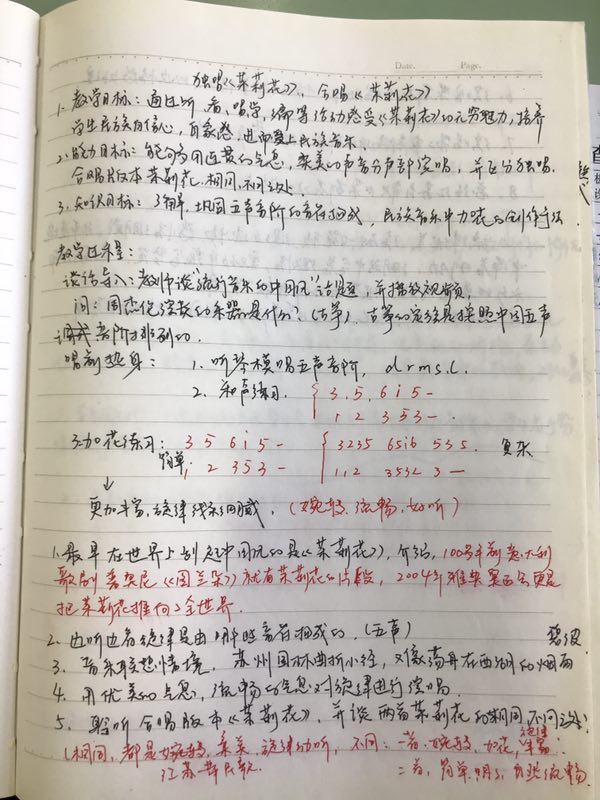 Date. Page.
独唱《茉莉花》, 合唱《茉莉花》
1. 教学目标: 通过听、看、唱、学、编等活动感受《茉莉花》的无穷魅力, 培养
学生民族自信心, 自豪感, 进而爱上民族音乐
2. 能力目标: 能够用连贯的气息, 柔美的声音分声部演唱, 并区分独唱、
合唱版本茉莉花相同、不同之处
3. 知识目标: 了解、巩固五声音阶的音符构成, 民族音乐中加花的创作手法
教学过程:
谈话导入: 教师谈"流行音乐的中国风"话题, 并播放视频,
问: 周杰伦演奏的乐器是什么? (古筝). 古筝的定弦是按照中国五声
调式音阶排列的.
唱前热身: 1. 听琴模唱五声音阶, d r m s. l.
2. 和声练习. 3. 5. 6 i 5 -
1 2 3 5 3 - .
3. 加花练习: 3 5 6 i 5 - 3235 6516 535. 复杂
简单 1; 2 353 - 112 3532 3 -
↓
更加丰富, 旋律线条细腻, (婉转、流畅、好听)
1. 最早在世界上刮起中国风的是《茉莉花》, 介绍, 100多年前意大利
歌剧普契尼《图兰朵》就有茉莉花的片段, 2004年雅典奥运会更是
把茉莉花推向了全世界.
2. 边听边看旋律是由哪些音符构成的. (五声) 碧波
3. 音乐联想情境, 苏州园林曲折小径, 对象荡舟在西湖的烟雨
4. 用优美的气息, 流畅的气息对旋律进行演唱.
5. 聆听合唱版本《茉莉花》, 并谈两首茉莉花的相同、不同之处?
(相同, 都是婉转, 柔美, 旋律动听, 不同: 一首: 婉转, 加花, 旋律丰富..
江苏一带民歌. 二首, 简单. 明了, 自然流畅